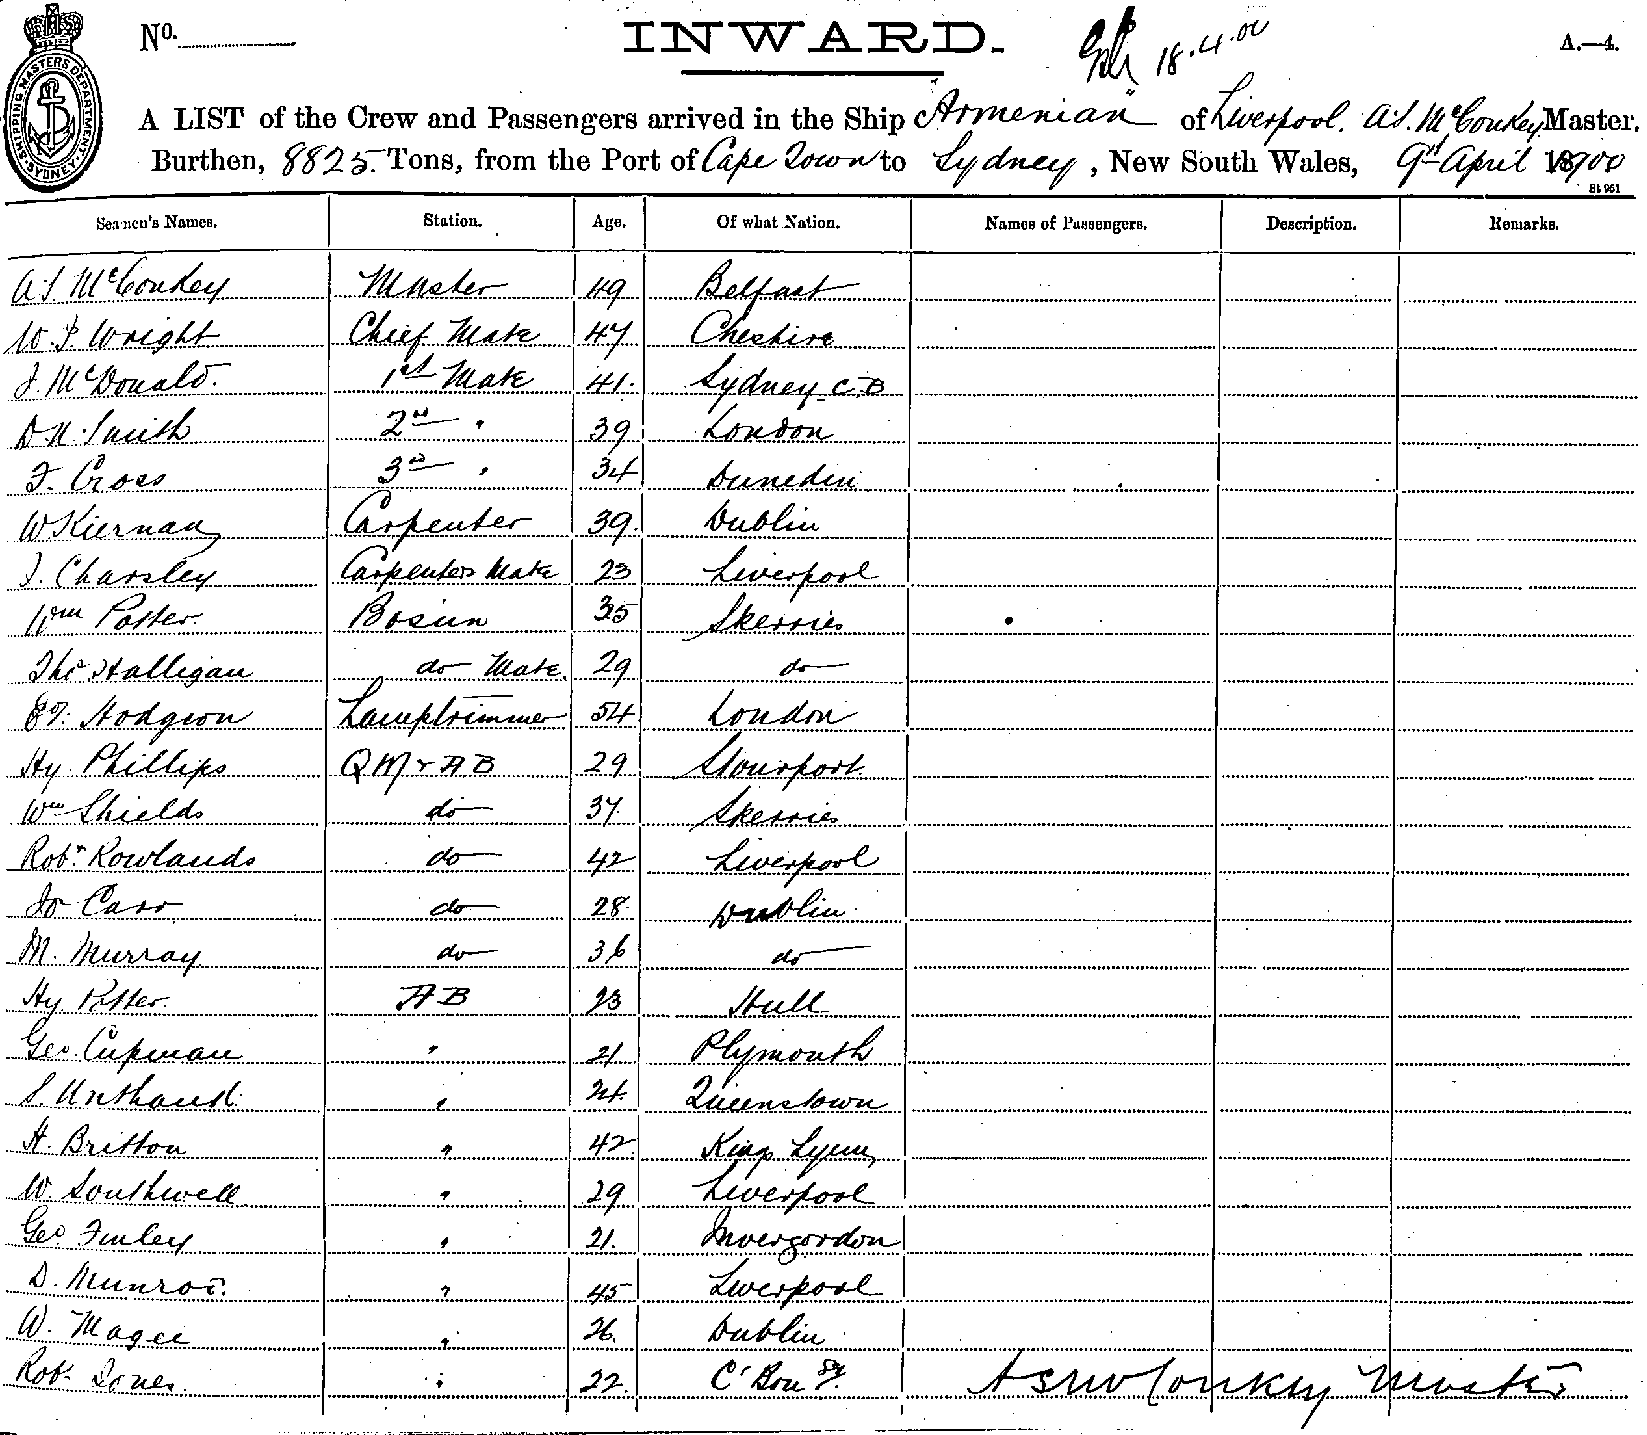 No. INWARD. 18.4.00 A.—4.
SHIPPING MASTERS DEPARTMENT SYDNEY
A LIST of the Crew and Passengers arrived in the Ship "Armenian" of Liverpool. A.S. McConkey Master.
Burthen, 8825 Tons, from the Port of Cape Town to Sydney, New South Wales, 9th April 1900
Seamen's Names. Station. Age. Of what Nation. Names of Passengers. Description. Remarks.
A S McConkey Master 49 Belfast
W. P Wright Chief Mate 47 Cheshire
J. McDonald. 1st Mate 41. Sydney C.B
D N. Smith 2nd " 39 London
F. Cross 3rd " 34 Dunedin
W Kiernan Carpenter 39. Dublin
J. Charsley Carpenters Mate 23 Liverpool
Wm Potter. Bosun 35 Skerries
Thos Halligan do Mate. 29 do
Hodgson Lamptrimmer 54 London
Hy. Phillips QM & AB 29 Stourport.
Wm Shields do 37. Skerries
Robt. Rowlands do 42 Liverpool
Jo Carr do 28 Dublin.
M. Murray do 36 do
Hy. Potter. AB 23 Hull
Geo. Cupman " 21 Plymouth
S. Unthand. " 24. Queenstown
H. Britton " 42. Kings Lynn
W. Southwell " 29 Liverpool
Geo. Finley " 21. Invergordon
D. Munroe. " 45 Liverpool
W. Magee " 26. Dublin
Robt Jones. " 22. C'Bon
A S McConkey Master